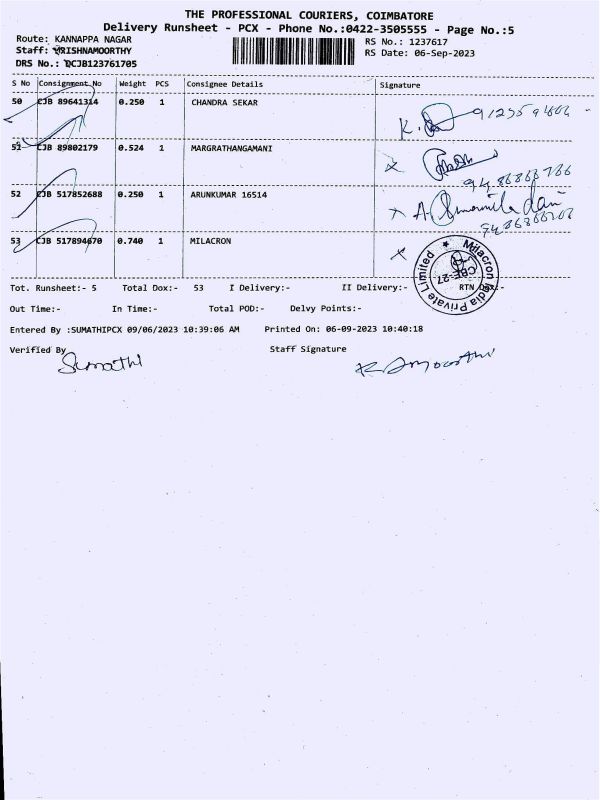 THE PROFESSIONAL COURIERS, COIMBATORE
Delivery Runsheet - PCX - Phone No.:0422-3505555 - Page No.:5
Route: KANNAPPA NAGAR
RS No.: 1237617
Staff: KRISHNAMOORTHY
RS Date: 06-Sep-2023
DRS No.: DCJB123761705
S No Consignment No Weight PCS Consignee Details Signature
50 CJB 89641314 0.250 1 CHANDRA SEKAR
51 CJB 89802179 0.524 1 MARGRATHANGAMANI
52 CJB 517852688 0.250 1 ARUNKUMAR 16514
53 CJB 517894670 0.740 1 MILACRON
Milacron India Private Limited
CBE-27
Tot. Runsheet:- 5 Total Dox:- 53 I Delivery:- II Delivery:- RTN Dox:-
Out Time:- In Time:- Total POD:- Delvy Points:-
Entered By :SUMATHIPCX 09/06/2023 10:39:06 AM Printed On: 06-09-2023 10:40:18
Verified By Staff Signature
Sumathi